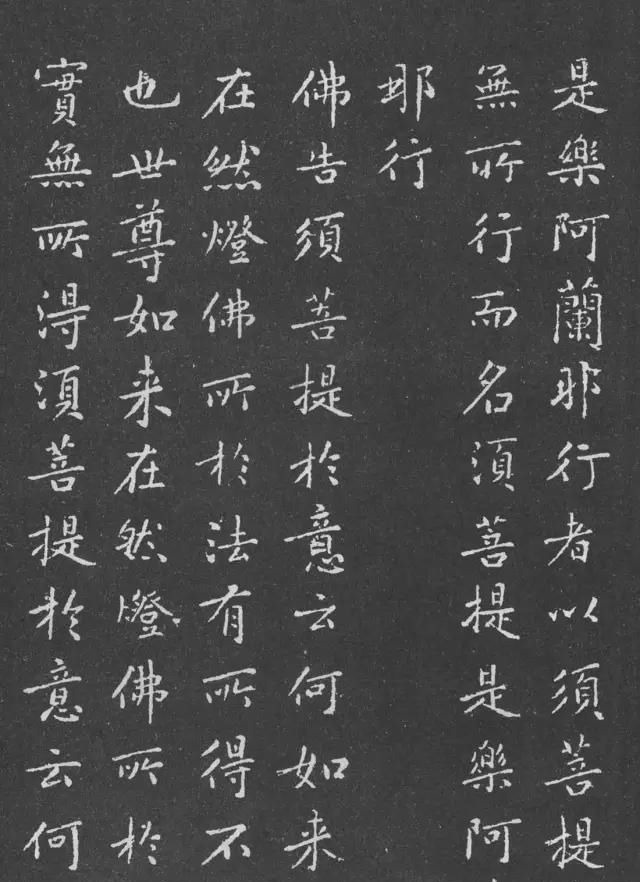 是樂阿蘭耶行者以須菩提
無所行而名須菩提是樂阿
耶行
佛告須菩提於意云何如来
在然燈佛所於法有所得不
也世尊如来在然燈佛所於
實無所得須菩提於意云何